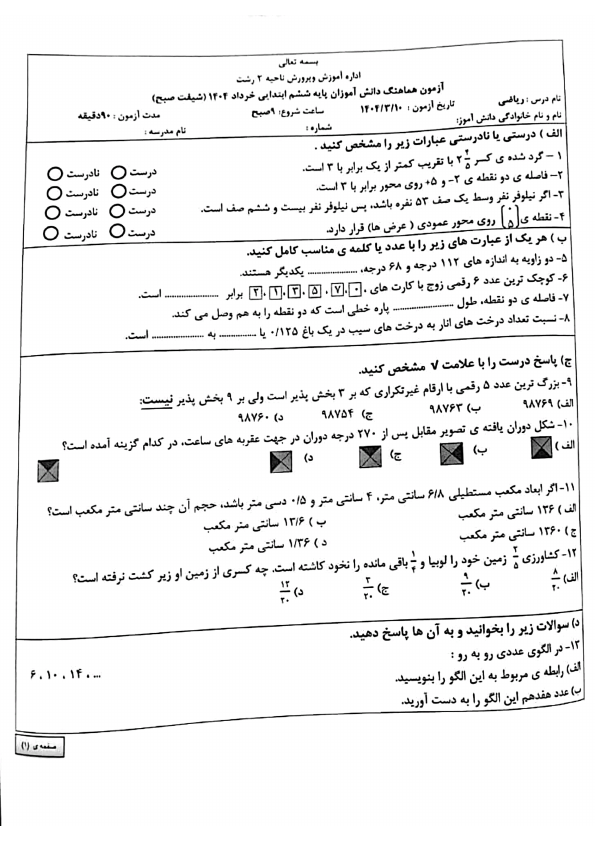 بسمه تعالی
اداره آموزش وپرورش ناحیه ۲ رشت
آزمون هماهنگ دانش آموزان پایه ششم ابتدایی خرداد ۱۴۰۴ (شیفت صبح)
نام درس : ریاضی تاریخ آزمون : ۱۴۰۴/۳/۱۰ ساعت شروع : ۹صبح مدت آزمون : ۹۰دقیقه
نام و نام خانوادگی دانش آموز: شماره : نام مدرسه :
الف ) درستی یا نادرستی عبارات زیر را مشخص کنید .
۱- گرد شده ی کسر ۲ ۴/۵ با تقریب کمتر از یک برابر با ۳ است. درست نادرست
۲- فاصله ی دو نقطه ی ۲- و ۵+ روی محور برابر با ۳ است. درست نادرست
۳- اگر نیلوفر نفر وسط یک صف ۵۳ نفره باشد، پس نیلوفر نفر بیست و ششم صف است. درست نادرست
۴- نقطه ی [۰ ۵] روی محور عمودی ( عرض ها) قرار دارد. درست نادرست
ب ) هر یک از عبارت های زیر را با عدد یا کلمه ی مناسب کامل کنید.
۵- دو زاویه به اندازه های ۱۱۲ درجه و ۶۸ درجه، .............. یکدیگر هستند.
۶- کوچک ترین عدد ۶ رقمی زوج با کارت های ۰ ، ۷ ، ۵ ، ۳ ، ۱ ، ۲ برابر .................. است.
۷- فاصله ی دو نقطه، طول .................... پاره خطی است که دو نقطه را به هم وصل می کند.
۸- نسبت تعداد درخت های انار به درخت های سیب در یک باغ ۰/۱۲۵ یا .............. به .................. است.
ج) پاسخ درست را با علامت √ مشخص کنید.
۹- بزرگ ترین عدد ۵ رقمی با ارقام غیرتکراری که بر ۳ بخش پذیر است ولی بر ۹ بخش پذیر نیست:
الف) ۹۸۷۶۹ ب) ۹۸۷۶۳ ج) ۹۸۷۵۴ د) ۹۸۷۶۰
۱۰- شکل دوران یافته ی تصویر مقابل پس از ۲۷۰ درجه دوران در جهت عقربه های ساعت، در کدام گزینه آمده است؟
الف ) ب) ج) د)
۱۱- اگر ابعاد مکعب مستطیلی ۶/۸ سانتی متر، ۴ سانتی متر و ۰/۵ دسی متر باشد، حجم آن چند سانتی متر مکعب است؟
الف ) ۱۳۶ سانتی متر مکعب ب ) ۱۳/۶ سانتی متر مکعب
ج ) ۱۳۶۰ سانتی متر مکعب د ) ۱/۳۶ سانتی متر مکعب
۱۲- کشاورزی ۲/۵ زمین خود را لوبیا و ۱/۴ باقی مانده را نخود کاشته است. چه کسری از زمین او زیر کشت نرفته است؟
الف) ۸/۲۰ ب) ۹/۲۰ ج) ۳/۲۰ د) ۱۲/۲۰
د) سوالات زیر را بخوانید و به آن ها پاسخ دهید.
۱۳- در الگوی عددی رو به رو : ۶ ، ۱۰ ، ۱۴ ، ...
الف) رابطه ی مربوط به این الگو را بنویسید.
ب) عدد هفدهم این الگو را به دست آورید.
صفحه ی (۱)